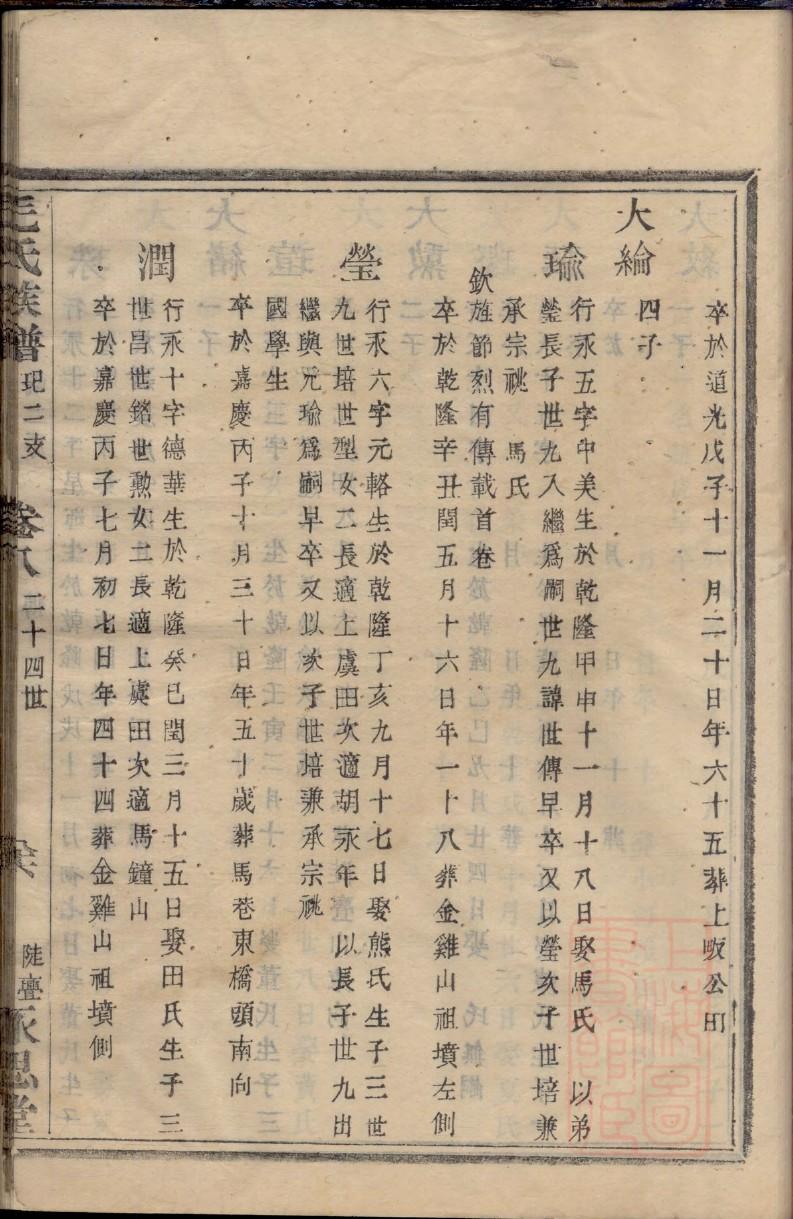 卒於道光戊子十一月二十日年六十五葬上畈公田
大綸 四子
瑜 行永五字中美生於乾隆甲申十一月十八日娶馬氏 以弟
瑩長子世九入繼爲嗣世九諱世傳早卒又以瑩次子世培兼
承宗祧 馬氏
欽旌節烈有傳載首卷
卒於乾隆辛丑閏五月十六日年一十八葬金雞山祖墳左側
瑩 行永六字元輅生於乾隆丁亥九月十七日娶熊氏生子三世
九世培世型女二長適上虞田次適胡永年 以長子世九出
繼與兄瑜爲嗣早卒又以次子世培兼承宗祧
國學生
卒於嘉慶丙子十月三十日年五十歲葬馬巷東橋頭南向
潤 行永十字德華生於乾隆癸巳閏三月十五日娶田氏生子三
世昌世銘世勲女二長適上虞田次適馬鐘山
卒於嘉慶丙子七月初七日年四十四葬金雞山祖墳側
毛氏族譜 玘二支 卷八 二十四世 陡亹永思堂